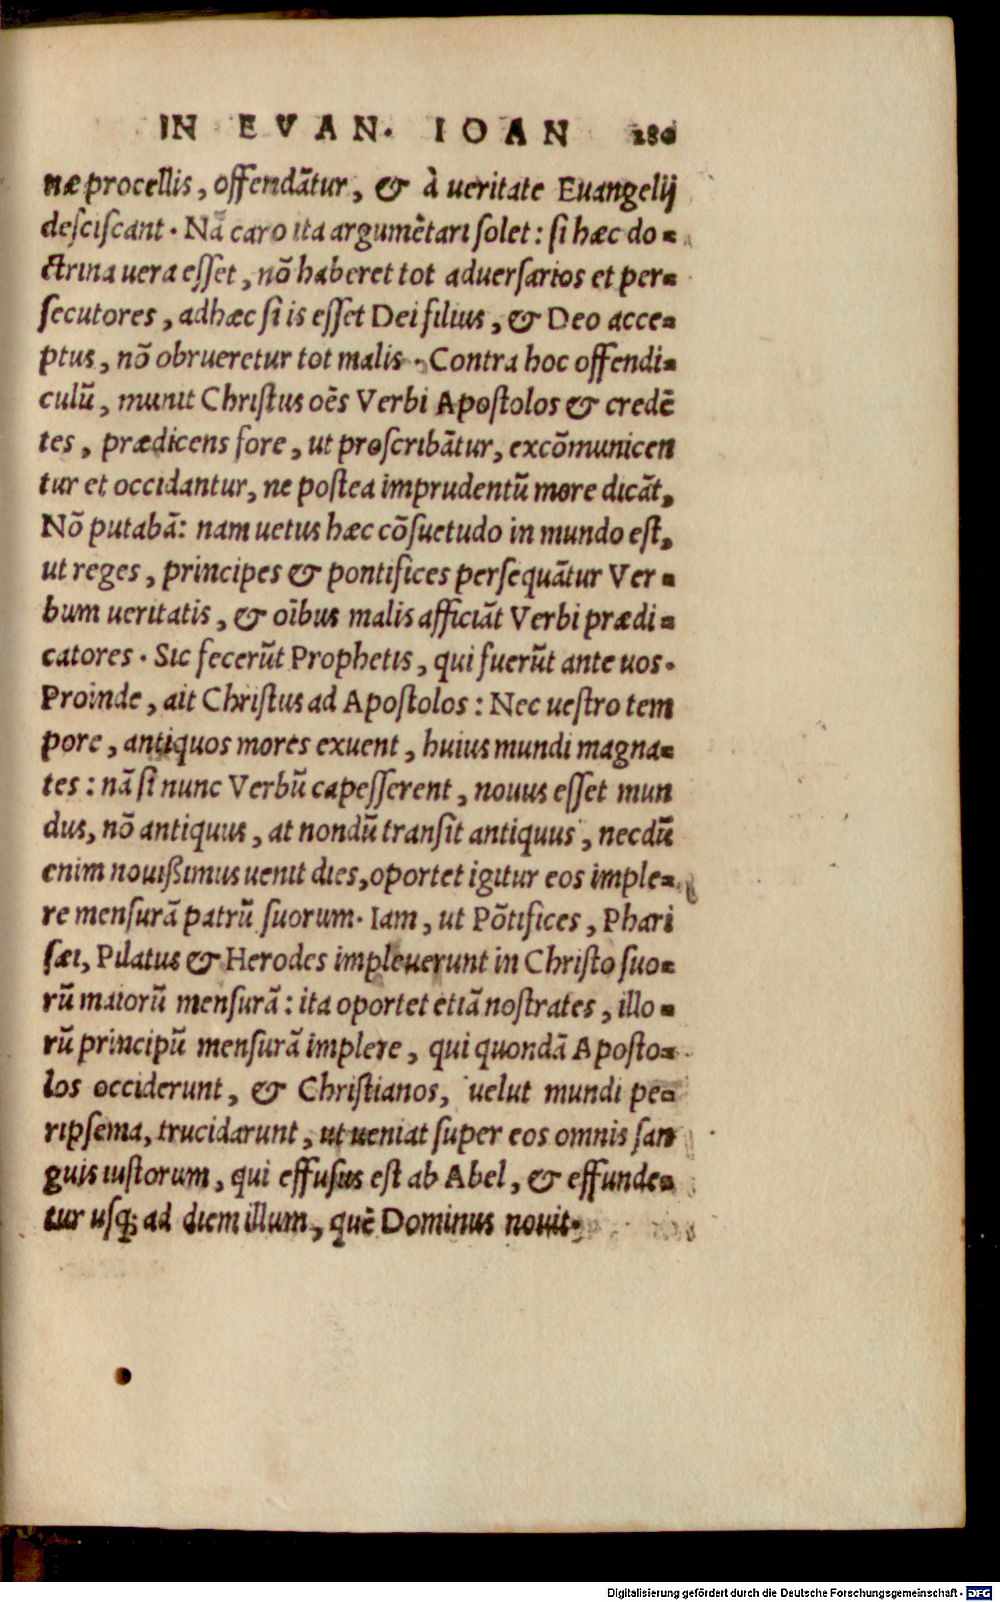 IN EVAN. IOAN 180
næ procellis, offendãtur, & à ueritate Euangelij
desciscant. Nã caro ita argumẽtari solet: si hæc do-
ctrina uera esset, nõ haberet tot aduersarios et per-
secutores, adhæc si is esset Dei filius, & Deo acce-
ptus, nõ obrueretur tot malis. Contra hoc offendi-
culũ, munit Christus oẽs Verbi Apostolos & credẽ
tes, prædicens fore, ut proscribãtur, excõmunicen
tur et occidantur, ne postea imprudentũ more dicãt,
Nõ putabã: nam uetus hæc cõsuetudo in mundo est,
ut reges, principes & pontifices persequãtur Ver-
bum ueritatis, & oĩbus malis afficiãt Verbi prædi-
catores. Sic fecerũt Prophetis, qui fuerũt ante uos.
Proinde, ait Christus ad Apostolos: Nec uestro tem
pore, antiquos mores exuent, huius mundi magna-
tes: nã si nunc Verbũ capesserent, nouus esset mun
dus, nõ antiquus, at nondũ transit antiquus, necdũ
enim nouißimus uenit dies, oportet igitur eos imple-
re mensurã patrũ suorum. Iam, ut Põtifices, Phari
sæi, Pilatus & Herodes impleuerunt in Christo suo-
rũ maiorũ mensurã: ita oportet etiã nostrates, illo-
rũ principũ mensurã implere, qui quondã Aposto-
los occiderunt, & Christianos, uelut mundi pe-
ripsema, trucidarunt, ut ueniat super eos omnis san
guis iustorum, qui effusus est ab Abel, & effunde-
tur usq; ad diem illum, quẽ Dominus nouit.
Digitalisierung gefördert durch die Deutsche Forschungsgemeinschaft - DFG